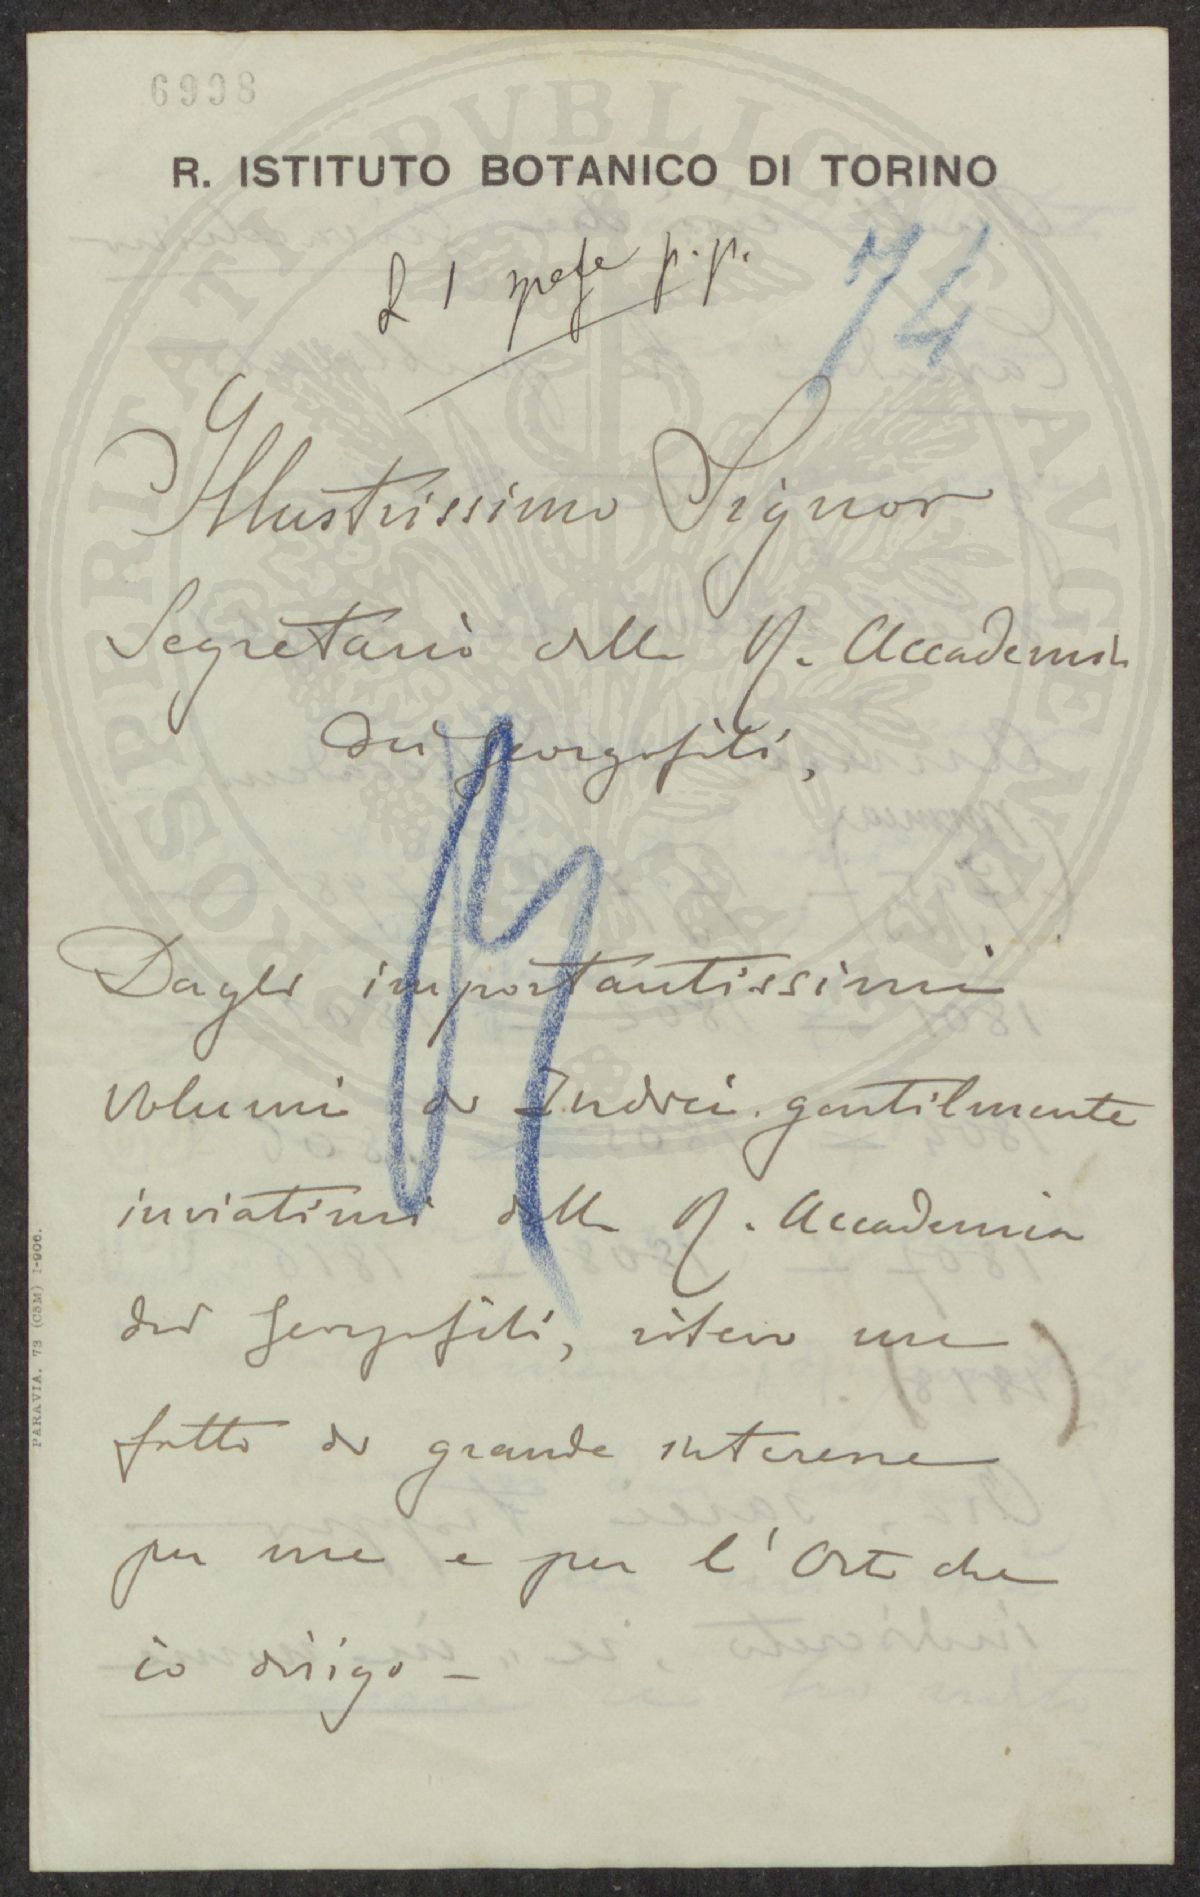 6998
R. ISTITUTO BOTANICO DI TORINO
74
Illustrissimo Signor
Segretario della R. Accademia
dei Georgofili,
Dagli importantissimi
volumi di Indici gentilmente
inviatimi della R. Accademia
dei Georgofili, rilevo un
fatto di grande interesse
per me e per l'Orto che
io dirigo –
PARAVIA. 73 (C3M) I-906.
PROSPERITATI PVBLICAE AVGENDAE